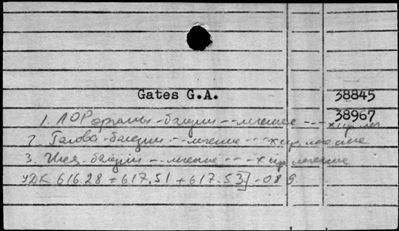 Gates G.A. 38845
38967
1. ЛОР органы - бацилл - - лечение - - - хир леч
2. Голова - бацилл - - лечение - - - хир лечение
3. Шея - бацилл - - лечение - - - хир лечение
УДК 616.28 + 617.51 + 617.53] - 089